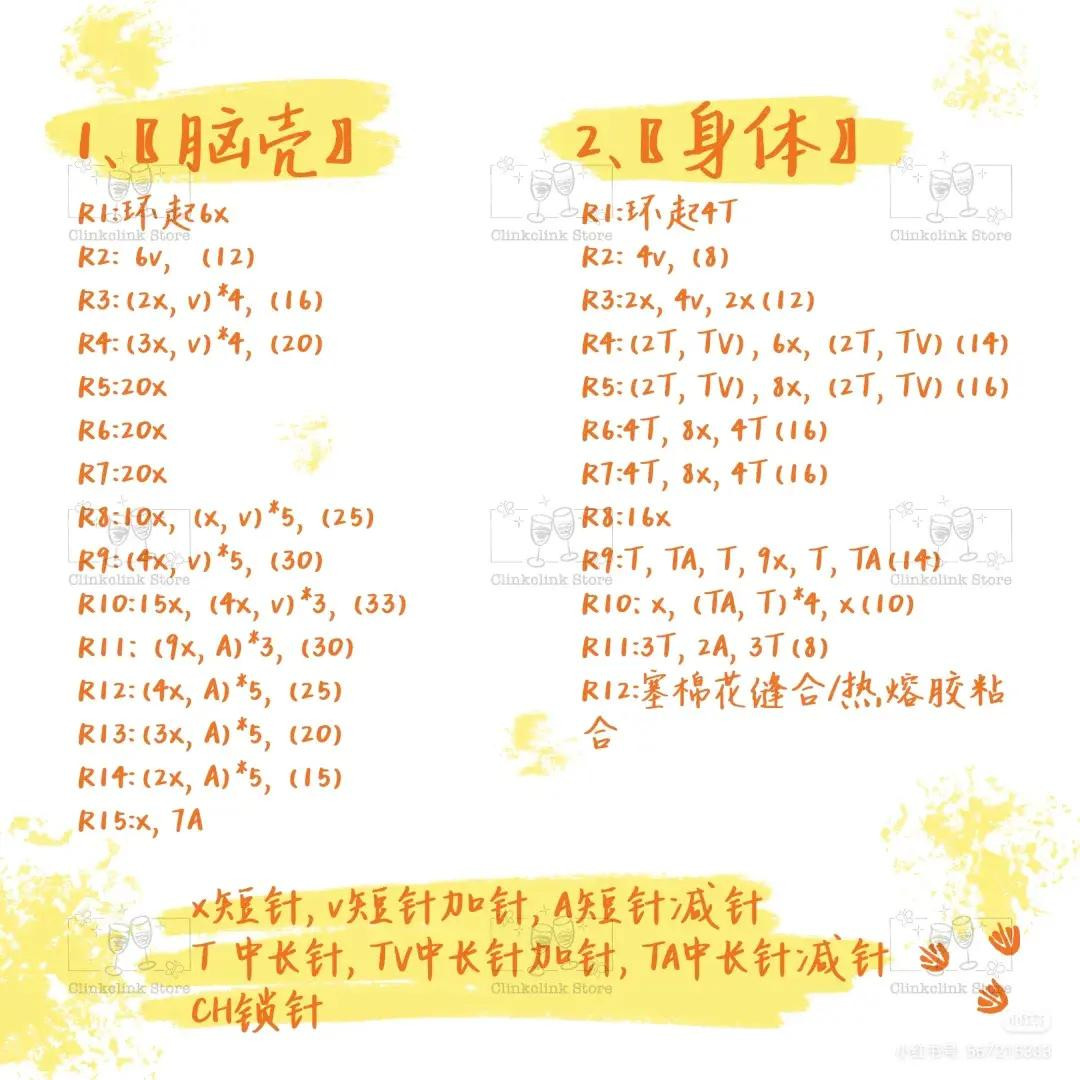 1、〖脑壳〗
R1:环起6x
R2: 6v, (12)
R3:(2x, v)*4, (16)
R4:(3x, v)*4, (20)
R5:20x
R6:20x
R7:20x
R8:10x, (x, v)*5, (25)
R9:(4x, v)*5, (30)
R10:15x, (4x, v)*3, (33)
R11: (9x, A)*3, (30)
R12:(4x, A)*5, (25)
R13:(3x, A)*5, (20)
R14:(2x, A)*5, (15)
R15:x, 7A
2、〖身体〗
R1:环起4T
R2: 4v, (8)
R3:2x, 4v, 2x(12)
R4:(2T, TV), 6x, (2T, TV) (14)
R5:(2T, TV), 8x, (2T, TV) (16)
R6:4T, 8x, 4T(16)
R7:4T, 8x, 4T(16)
R8:16x
R9:T, TA, T, 9x, T, TA(14)
R10: x, (TA, T)*4, x(10)
R11:3T, 2A, 3T(8)
R12:塞棉花缝合/热熔胶粘
合
x短针, v短针加针, A短针减针
T 中长针, TV中长针加针, TA中长针减针
CH锁针
Clinkclink Store
Clinkclink Store
Clinkclink Store
Clinkclink Store
Clinkclink Store
Clinkclink Store
Clinkclink Store
Clinkclink Store
Clinkclink Store
小红书
小红书号: 567215393